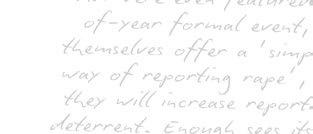 even feature
of-year formal event,
themselves offer a 'simp
way of reporting rape',
they will increase report
deterrent. Enough sees it